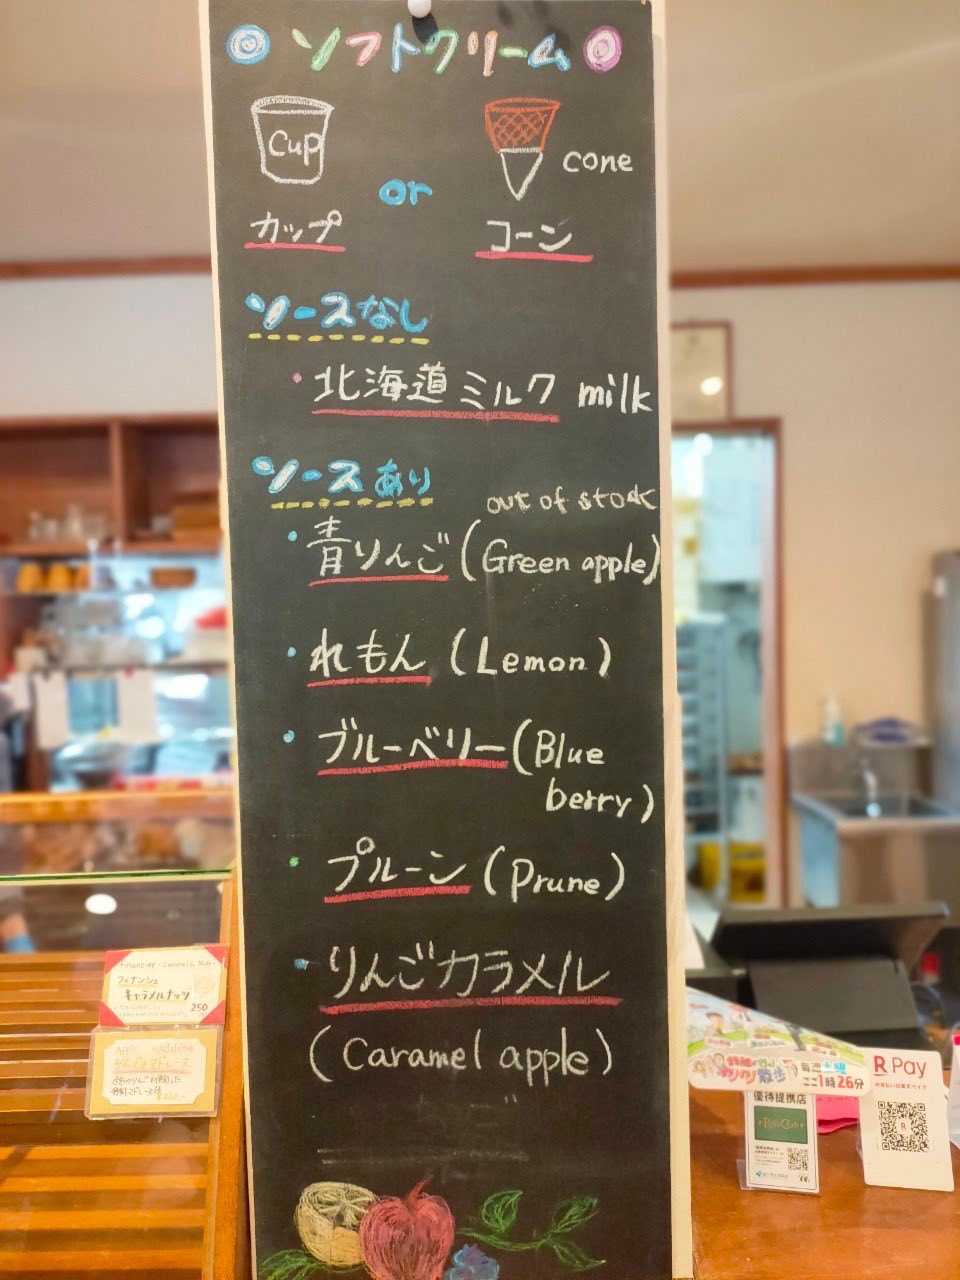 ソフトクリーム
cup
or
cone
カップ
コーン
ソースなし
・北海道ミルク milk
ソースあり
out of stock
・青りんご (Green apple)
・れもん (Lemon)
・ブルーベリー (Blue
berry)
・プルーン (Prune)
・りんごカラメル
(Caramel apple)
フィナンシェ
キャラメルナッツ
250
りんごマドレーヌ
毎週土曜
ごご1時26分
優待提携店
R Pay
お支払いは楽天ペイで